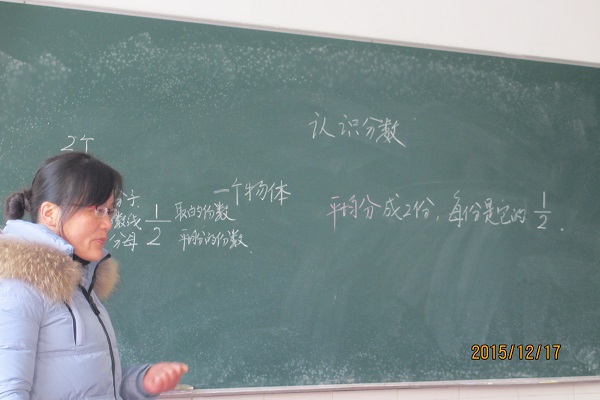 认识分数
2个
一个物体
分子 1 取的份数
分数线
分母 2 平均分的份数.
平均分成2份,每份是它的1/2.
2015/12/17